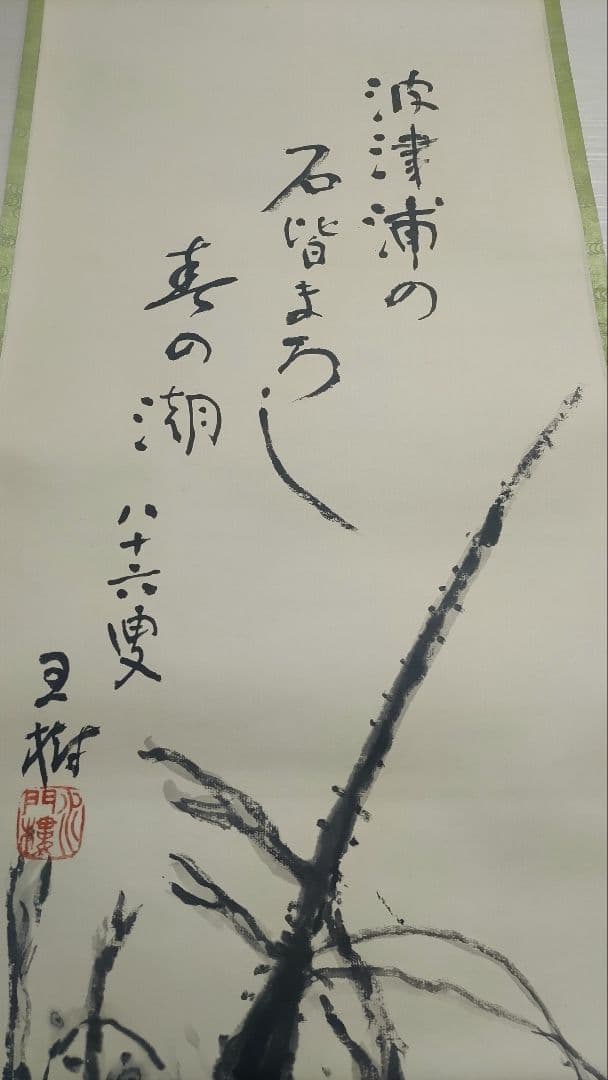 波津浦の
石皆まろし
春の潮
八十六叟
王樹
門樓